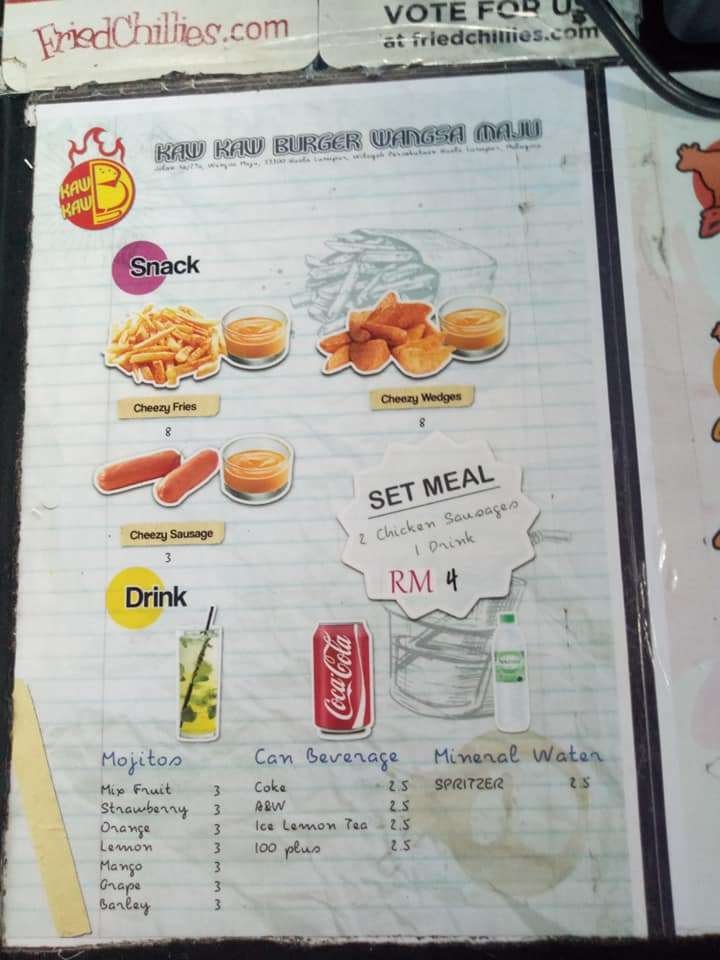 FriedChillies.com
VOTE FOR US
at friedchillies.com
KAW KAW BURGER WANGSA MAJU
Wangsa Maju, 53300 Kuala Lumpur, Wilayah Persekutuan Kuala Lumpur, Malaysia
KAW
KAW
Snack
Cheezy Fries
8
Cheezy Wedges
8
Cheezy Sausage
3
SET MEAL
2 Chicken Sausages
1 Drink
RM 4
Drink
Coca-Cola
Mojitos
Mix Fruit 3
Strawberry 3
Orange 3
Lemon 3
Mango 3
Grape 3
Barley 3
Can Beverage
Coke 2.5
A&W 2.5
Ice Lemon Tea 2.5
100 plus 2.5
Mineral Water
SPRITZER 2.5